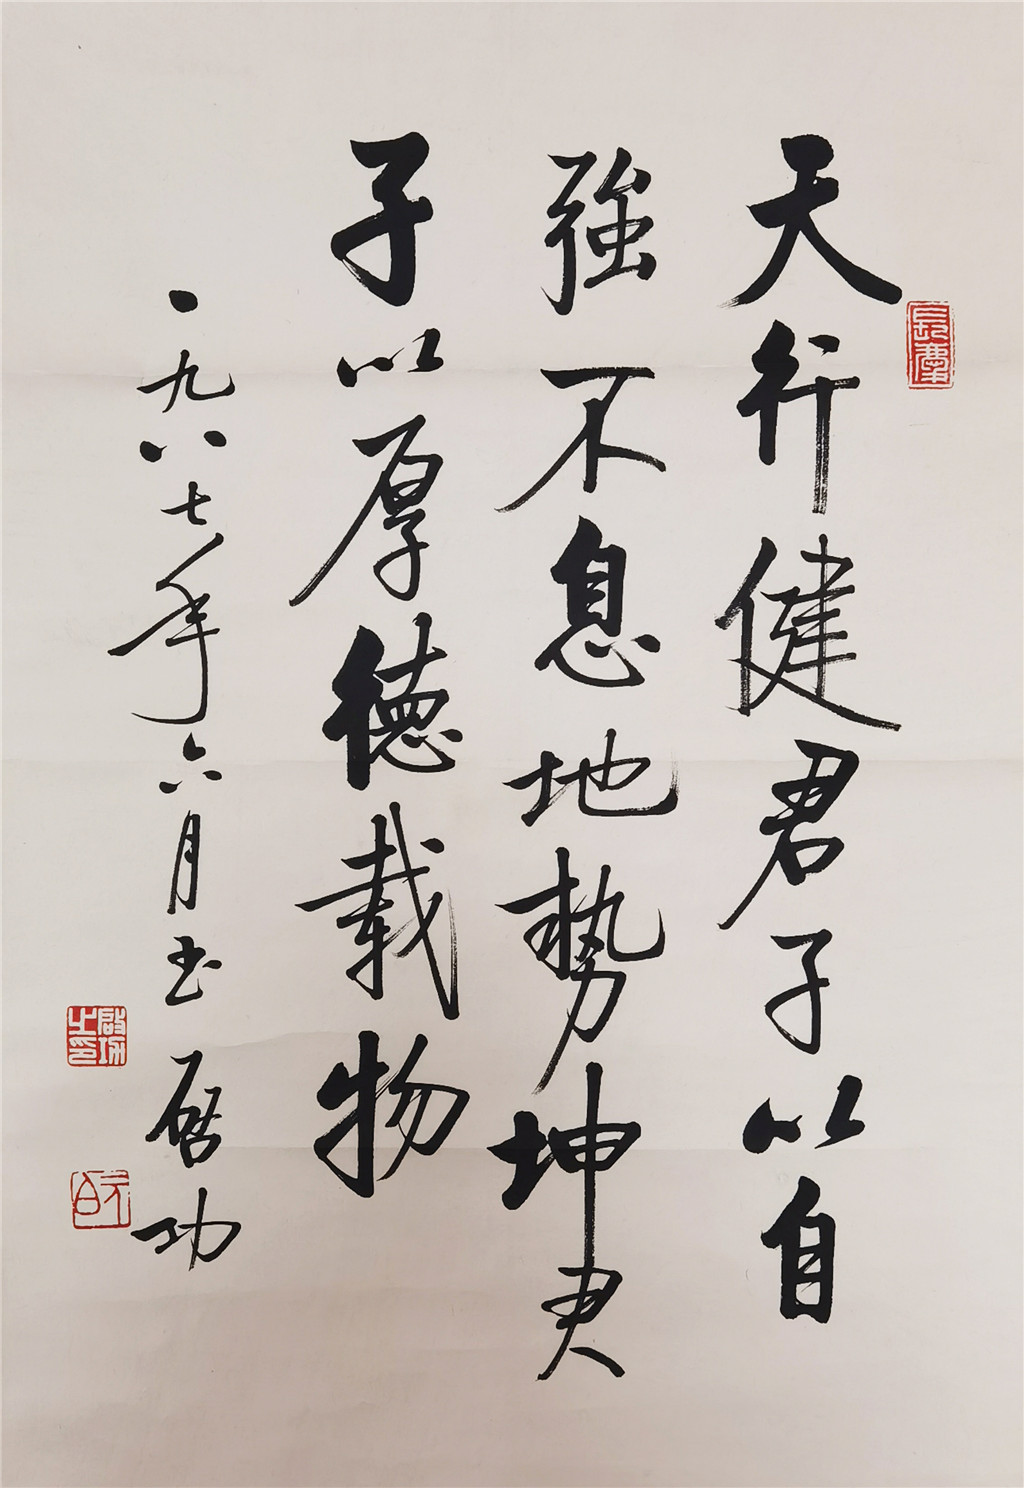 天行健君子以自
強不息地勢坤君
子以厚德載物
一九八七年六月书 啓功
啟功之印
元白